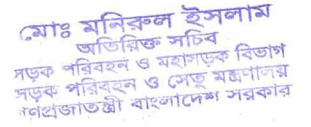 মোঃ মনিরুল ইসলাম
অতিরিক্ত সচিব
সড়ক পরিবহন ও মহাসড়ক বিভাগ
সড়ক পরিবহন ও সেতু মন্ত্রণালয়
গণপ্রজাতন্ত্রী বাংলাদেশ সরকার